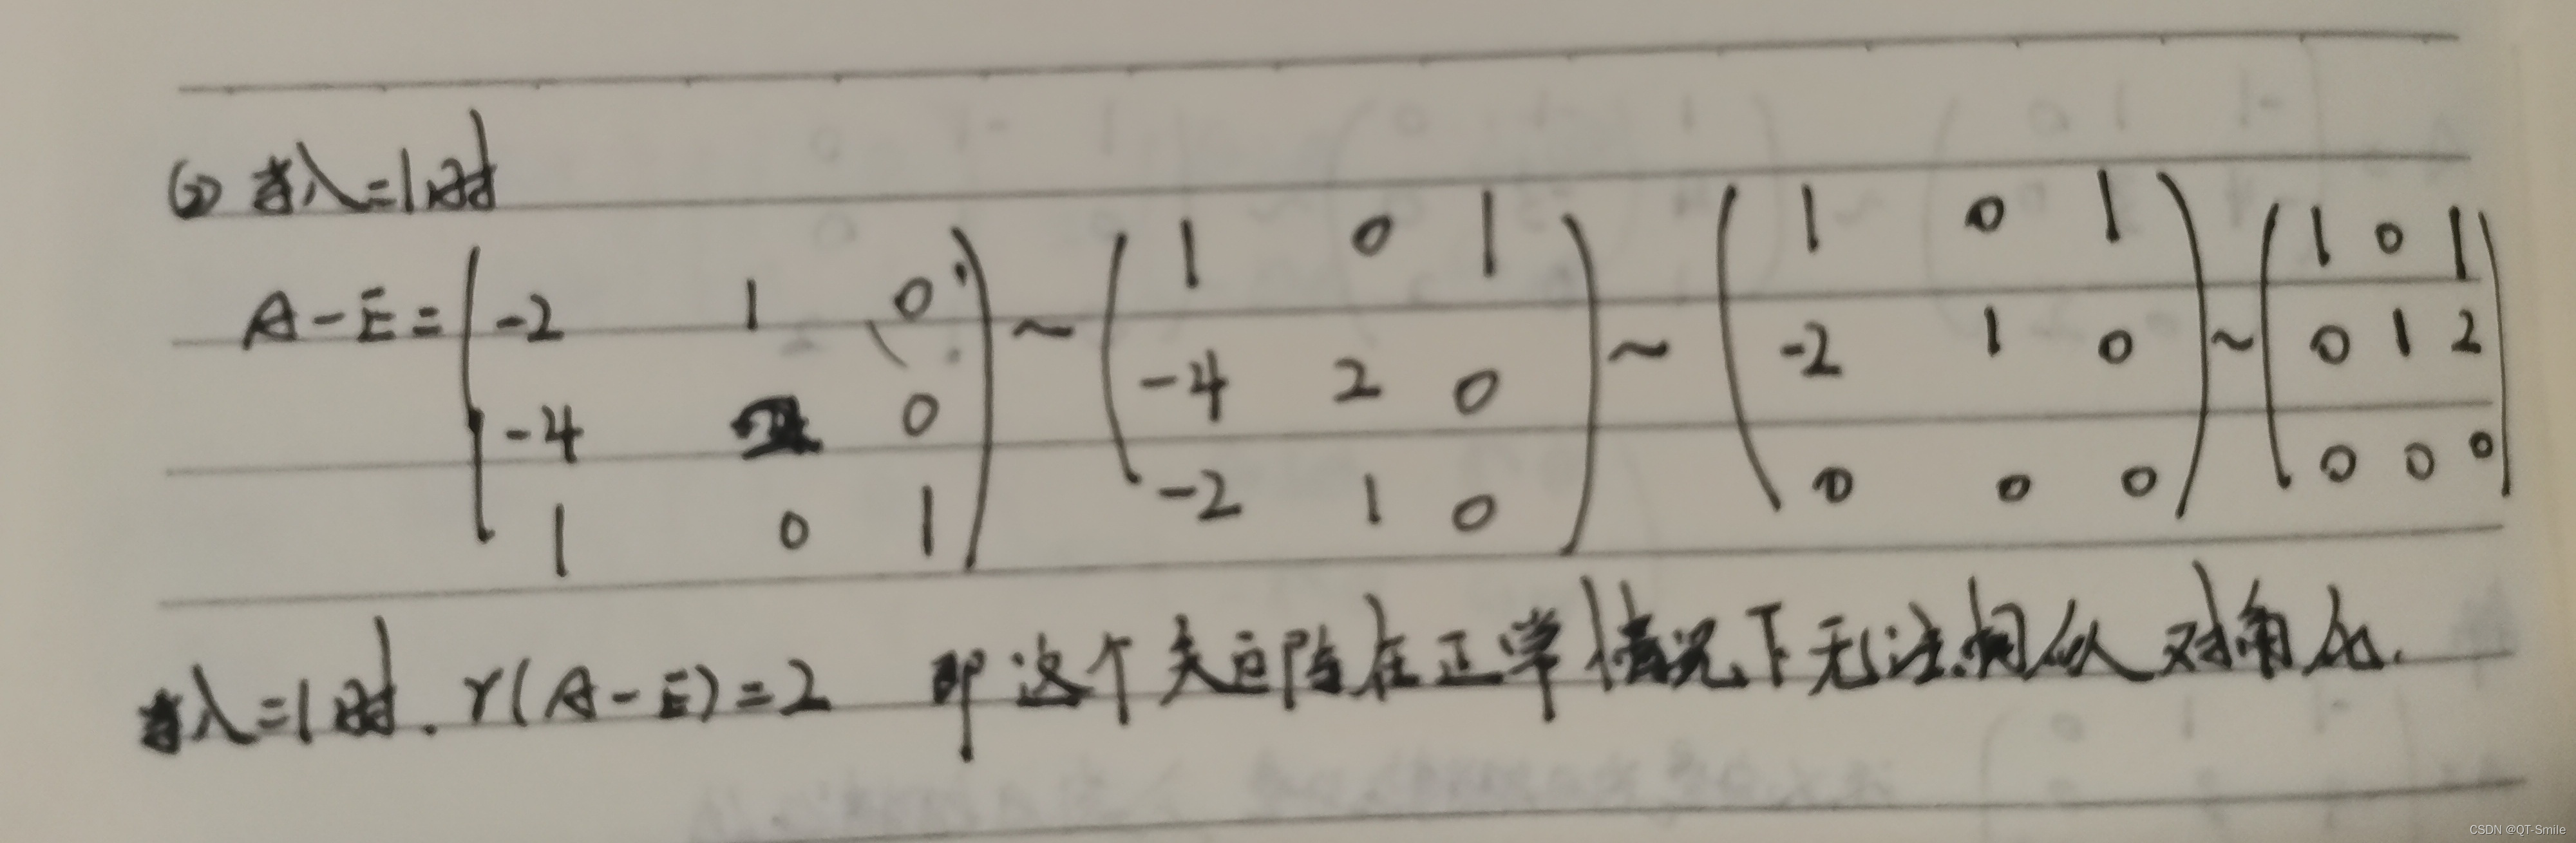 (2) 当λ=1时
A-E= ( -2 1 0 ) ~ ( 1 0 1 ) ~ ( 1 0 1 ) ~ ( 1 0 1 )
-4 2 0 -4 2 0 -2 1 0 0 1 2
1 0 1 -2 1 0 0 0 0 0 0 0
当λ=1时. r(A-E)=2 即这个矩阵在正常情况下无法相似对角化.
CSDN @QT-Smile